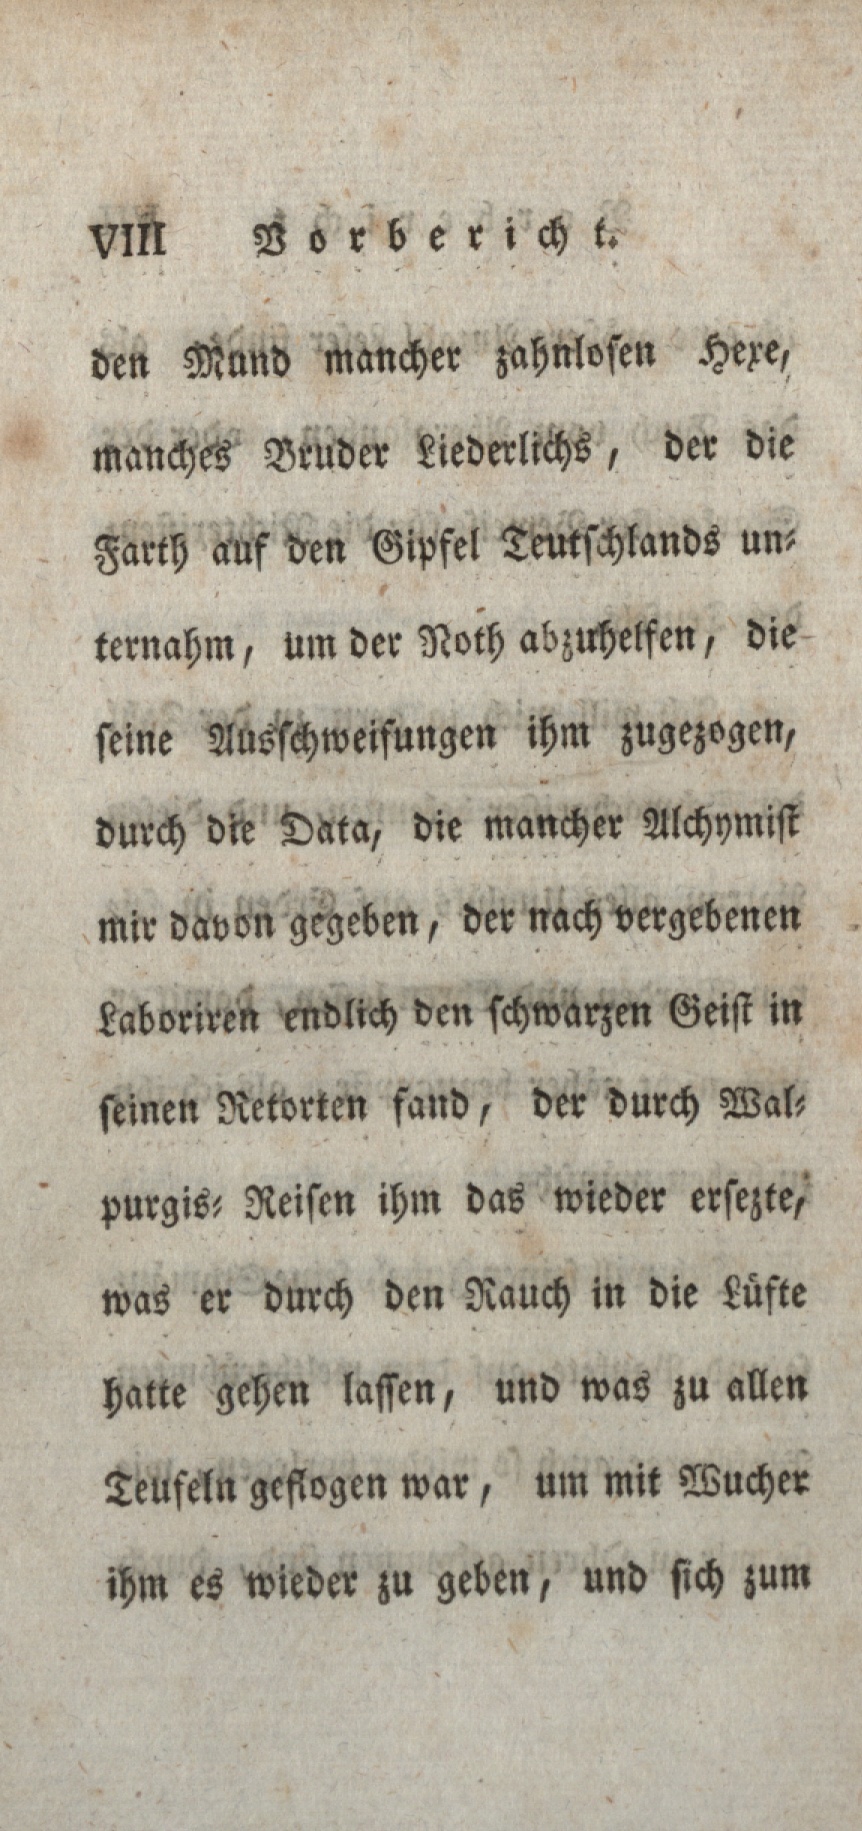 VIII Vorbericht.
den Mund mancher zahnlosen Hexe,
manches Bruder Liederlichs, der die
Farth auf den Gipfel Teutschlands un-
ternahm, um der Noth abzuhelfen, die
seine Ausschweifungen ihm zugezogen,
durch die Data, die mancher Alchymist
mir davon gegeben, der nach vergebenen
Laboriren endlich den schwarzen Geist in
seinen Retorten fand, der durch Wal-
purgis- Reisen ihm das wieder ersezte,
was er durch den Rauch in die Lüfte
hatte gehen lassen, und was zu allen
Teufeln geflogen war, um mit Wucher
ihm es wieder zu geben, und sich zum